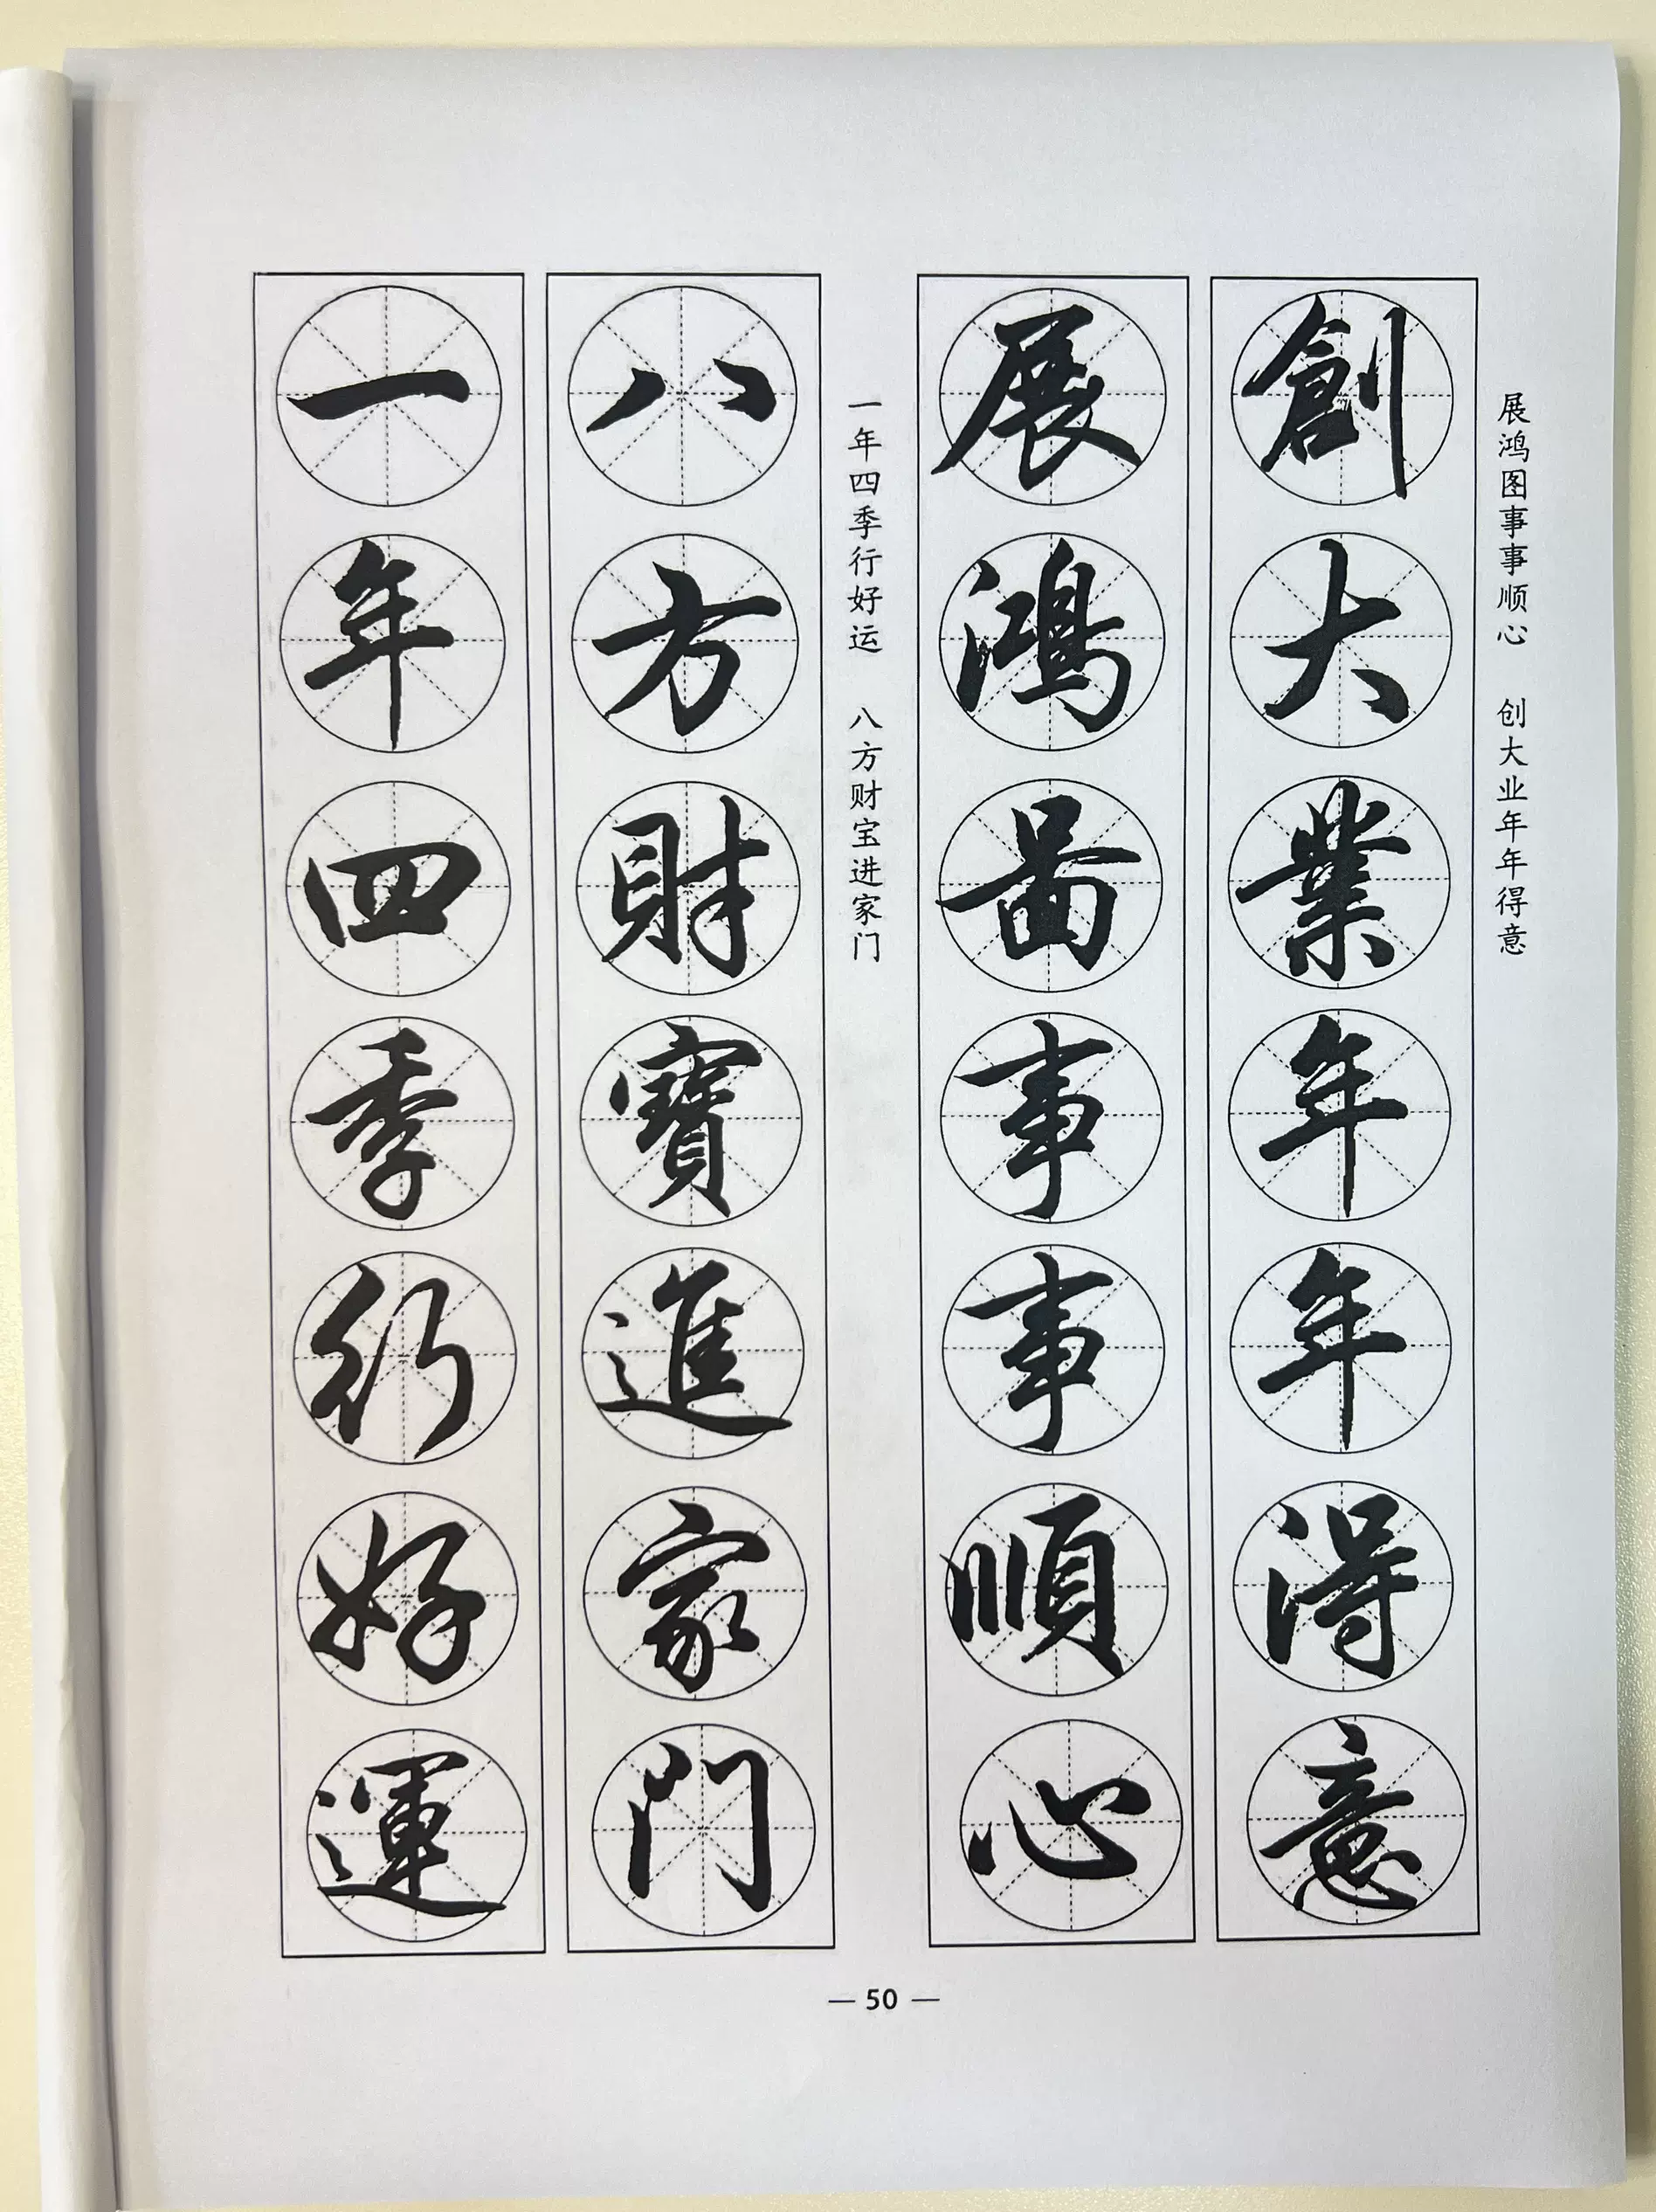 展鸿图事事顺心 创大业年年得意
創大業年年得意
展鴻圖事事順心
一年四季行好运 八方财宝进家门
八方財寶進家門
一年四季行好運
— 50 —